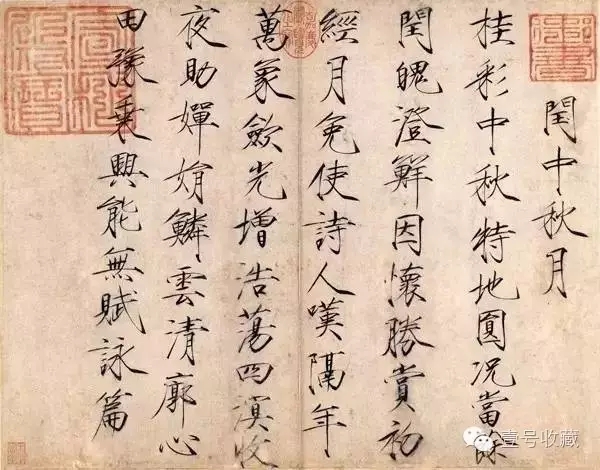 閏中秋月
桂彩中秋特地圓况當餘
閏魄澄鮮因懷勝賞初
經月免使詩人嘆隔年
萬象斂光增浩蕩四溟收
夜助嬋娟鱗雲清廓心
田豫乘興能無賦詠篇
壹号收藏